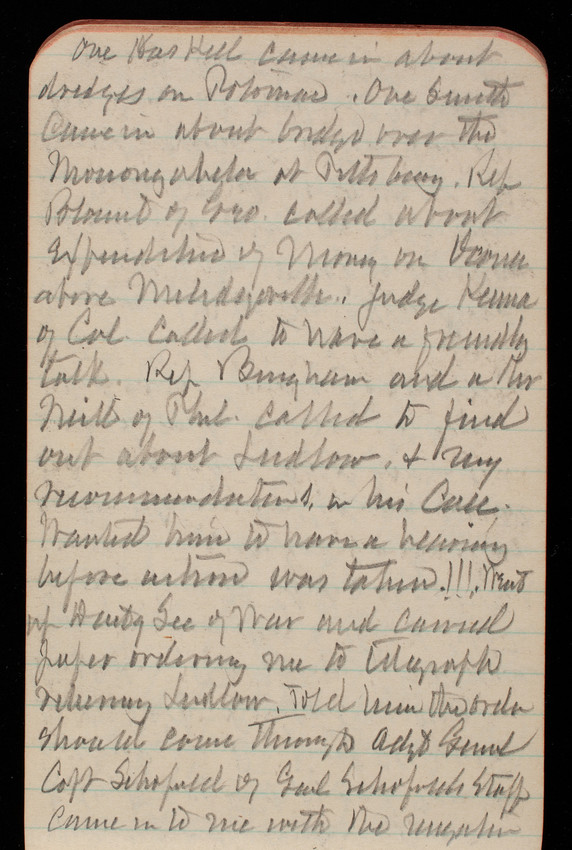 One Haskell came in about
dredges on Potomac. One Smith
came in about bridge over the
Monongahela at Pittsburg. Rep
Blount of Geo. called about
Expenditure of Money on Oconee
above Milledgeville. Judge
of Cal. Called to have a friendly
talk. Rep Bingham and a Mr
Neill of Phil. called to find
out about Ludlow. & my
recommendations, in his Case.
Wanted him to have a hearing
before action was taken.!!!. Went
up Secy of War and carried
paper ordering me to telegraph
relieving Ludlow. Told him the order
should come through Adjt Genl
Capt Schofield of Genl Schofields Staff
came in to me with the